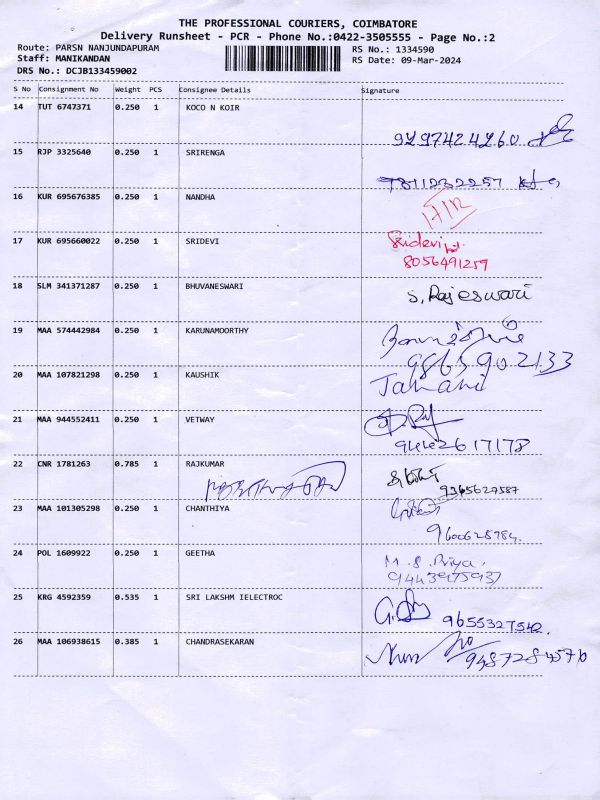 THE PROFESSIONAL COURIERS, COIMBATORE
Delivery Runsheet - PCR - Phone No.:0422-3505555 - Page No.:2
Route: PARSN NANJUNDAPURAM
RS No.: 1334590
Staff: MANIKANDAN
RS Date: 09-Mar-2024
DRS No.: DCJB133459002
S No Consignment No Weight PCS Consignee Details Signature
14 TUT 6747371 0.250 1 KOCO N KOIR
15 RJP 3325640 0.250 1 SRIRENGA
16 KUR 695676385 0.250 1 NANDHA
17 KUR 695660022 0.250 1 SRIDEVI Sridevi
8056491259
18 SLM 341371287 0.250 1 BHUVANESWARI S. Rajeswari
19 MAA 574442984 0.250 1 KARUNAMOORTHY
9865902133
20 MAA 107821298 0.250 1 KAUSHIK Janani
21 MAA 944552411 0.250 1 VETWAY
9442617178
22 CNR 1781263 0.785 1 RAJKUMAR
9365627587
23 MAA 101305298 0.250 1 CHANTHIYA
9600628784.
24 POL 1609922 0.250 1 GEETHA M. S. Priya.
9443975937
25 KRG 4592359 0.535 1 SRI LAKSHM IELECTROC
9655327542.
26 MAA 106938615 0.385 1 CHANDRASEKARAN